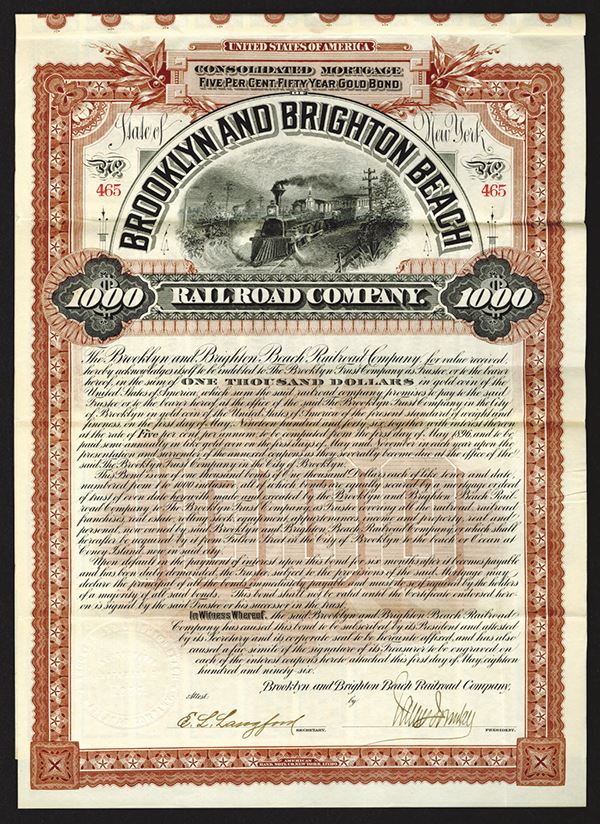 UNITED STATES OF AMERICA
CONSOLIDATED MORTGAGE
FIVE PER CENT. FIFTY YEAR GOLD BOND
OF THE
State of New York
BROOKLYN AND BRIGHTON BEACH
No No
465 465
1000 RAILROAD COMPANY. 1000
The Brooklyn and Brighton Beach Railroad Company, for value received,
hereby acknowledges itself to be indebted to The Brooklyn Trust Company as Trustee, or to the bearer
hereof, in the sum of ONE THOUSAND DOLLARS in gold coin of the
United States of America, which sum the said railroad company promises to pay to the said
Trustee or to the bearer hereof at the office of the said The Brooklyn Trust Company in the City
of Brooklyn in gold coin of the United States of America of the present standard of weight and
fineness, on the first day of May, Nineteen hundred and forty six, together with interest thereon
at the rate of Five per cent per annum to be computed from the first day of May 1896, and to be
paid semi-annually in like gold coin on the first days of May and November in each year upon the
presentation and surrender of the annexed coupons as they severally become due at the office of the
said The Brooklyn Trust Company in the City of Brooklyn.
This Bond is one of one thousand bonds of one thousand Dollars each of like tenor and date,
numbered from 1 to 1000 inclusive, all which bonds are equally secured by a mortgage or deed
of trust of even date herewith made and executed by the Brooklyn and Brighton Beach Rail-
road Company to The Brooklyn Trust Company, as Trustee covering all the railroad, railroad
franchises, real estate, rolling stock, equipment, appurtenances, income and property, real and
personal, now owned by said Brooklyn and Brighton Beach Railroad Company, or which shall
hereafter be acquired by it from Fulton Street in the City of Brooklyn to the beach or Ocean at
Coney Island, now in said city.
Upon default in the payment of interest upon this bond for six months after it becomes payable
and has been demanded, the Trustee, subject to the provisions of the said Mortgage may
declare the principal of all the bonds immediately payable and must do so if required by the holders
of a majority of all said bonds. This bond shall not be valid until the Certificate endorsed here-
on is signed by the said Trustee or his successor in the trust.
In Witness Whereof, the said Brooklyn and Brighton Beach Railroad
Company has caused this bond to be subscribed by its President and attested
by its Secretary and its corporate seal to be hereunto affixed, and has also
caused a fac-simile of the signature of its Treasurer to be engraved on
each of the interest coupons hereto attached this first day of May, eighteen
hundred and ninety-six.
Brooklyn and Brighton Beach Railroad Company,
Attest. by
E. L. Langford SECRETARY. PRESIDENT.
AMERICAN
BANK NOTE CO. NEW YORK.